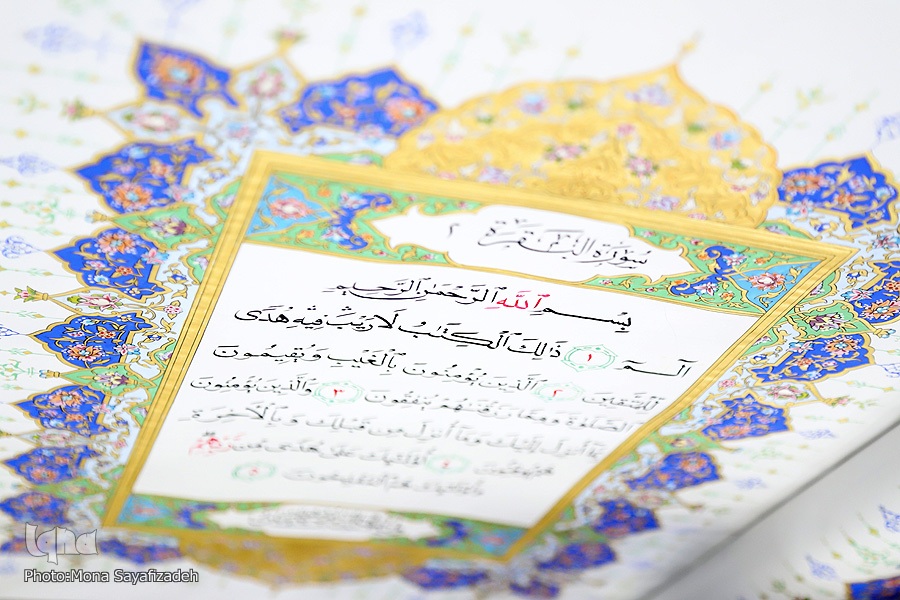 سورة البقرة ٢
بسم الله الرحمن الرحيم
الٓمٓ ١ ذَٰلِكَ ٱلْكِتَابُ لَا رَيْبَ فِيهِ هُدًى
لِلْمُتَّقِينَ ٢ ٱلَّذِينَ يُؤْمِنُونَ بِٱلْغَيْبِ وَيُقِيمُونَ
ٱلصَّلَوٰةَ وَمِمَّا رَزَقْنَٰهُمْ يُنْفِقُونَ ٣ وَٱلَّذِينَ يُؤْمِنُونَ
بِمَا أُنْزِلَ إِلَيْكَ وَمَا أُنْزِلَ مِنْ قَبْلِكَ وَبِٱلْآخِرَةِ
هُمْ يُوقِنُونَ ٤ أُولَٰئِكَ عَلَىٰ هُدًى مِنْ رَبِّهِمْ
وَأُولَٰئِكَ هُمُ ٱلْمُفْلِحُونَ ٥
iqna
Photo:Mona Sayafizadeh